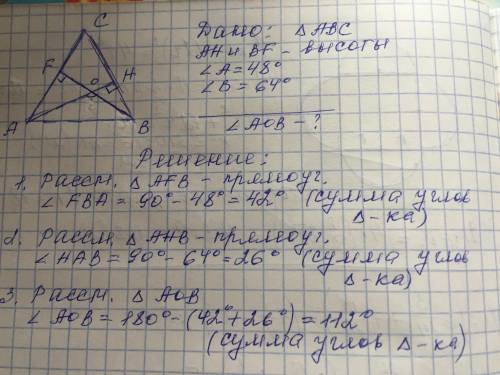 C
F
O
H
A
B
Дано: △ABC
AH и BF - высоты
∠A=48°
∠B=64°
∠AOB - ?
Решение:
1. Рассм. △AFB - прямоуг.
∠FBA = 90° - 48° = 42° (сумма углов
△-ка)
2. Рассм. △AHB - прямоуг.
∠HAB = 90° - 64° = 26° (сумма углов
△-ка)
3. Рассм. △AOB
∠AOB = 180° - (42°+26°) = 112°
(сумма углов △-ка)